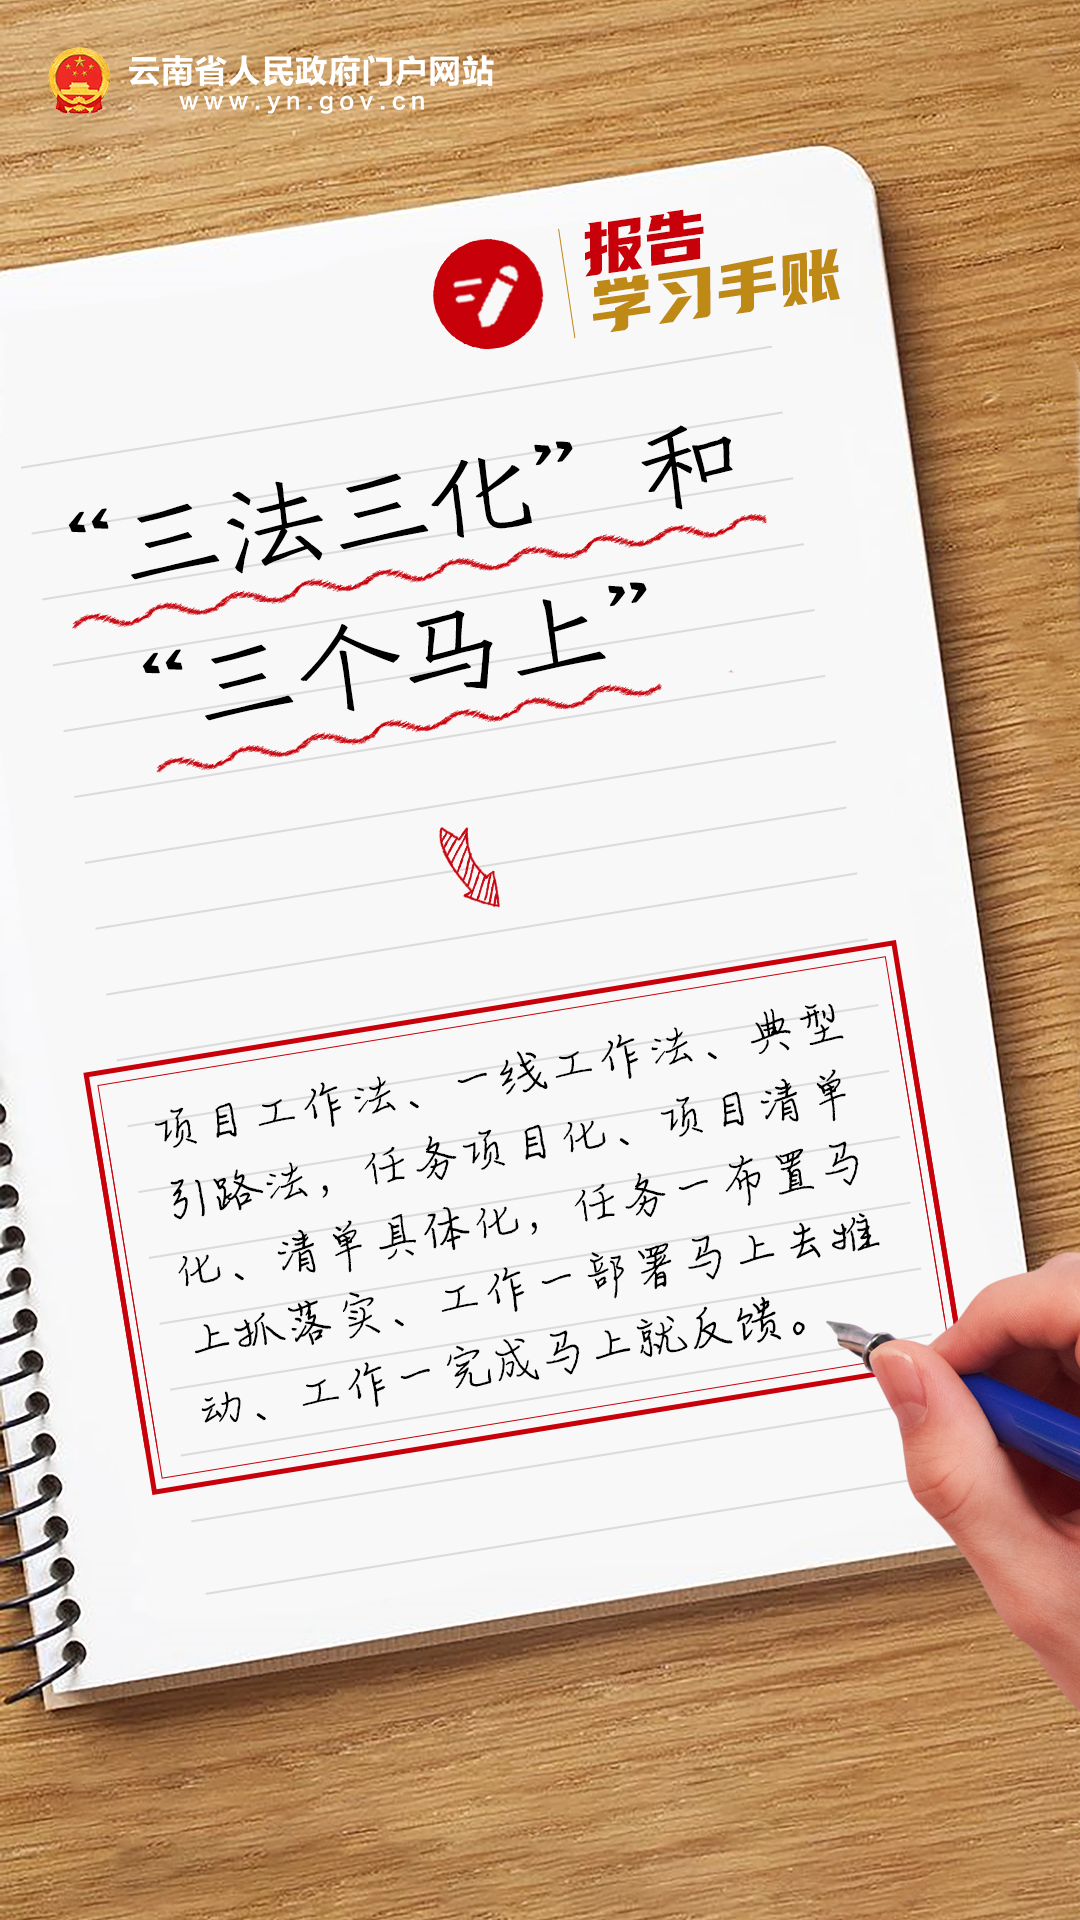 云南省人民政府门户网站
www.yn.gov.cn
报告
学习手账
“三法三化”和
“三个马上”
项目工作法、一线工作法、典型
引路法，任务项目化、项目清单
化、清单具体化，任务一布置马
上抓落实、工作一部署马上去推
动、工作一完成马上就反馈。